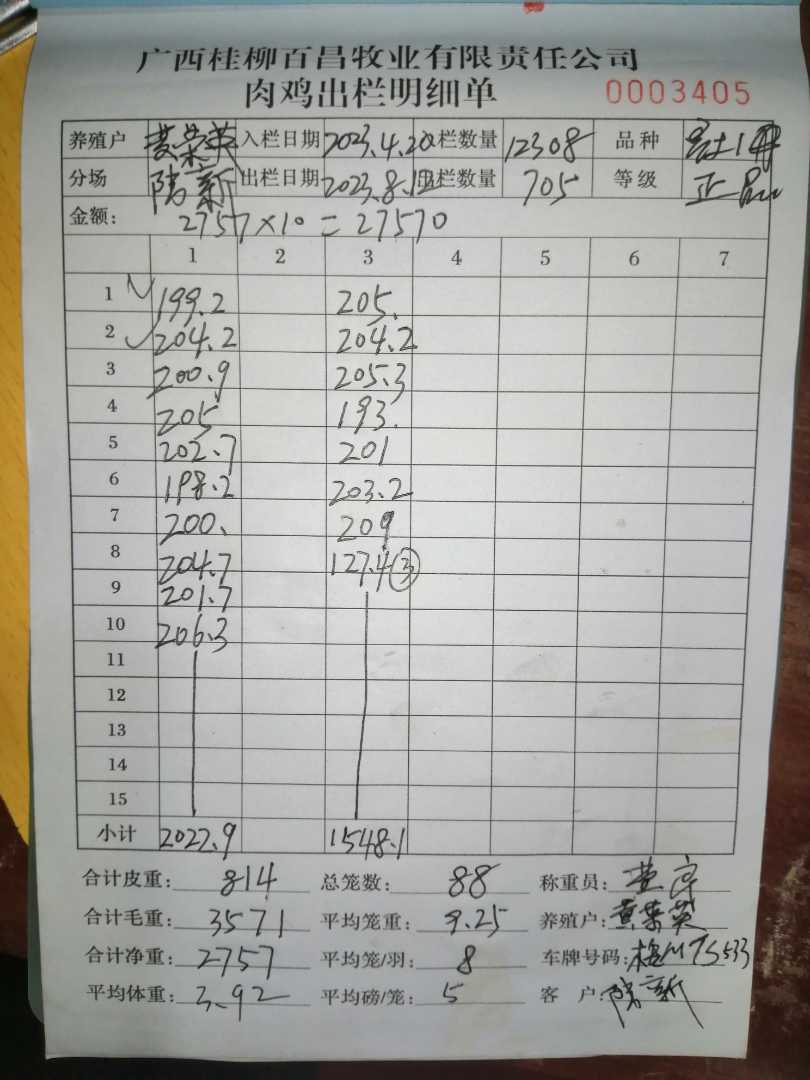 广西桂柳百昌牧业有限责任公司
肉鸡出栏明细单 0003405
养殖户 黄荣英 入栏日期 2023.4.20 栏数量 12308 品种
分场 陈新 出栏日期 2023.8.12 出栏数量 705 等级 正品
金额: 2757×10=27570
1 2 3 4 5 6 7
1 199.2 205.
2 204.2 204.2
3 200.9 205.3
4 205 193.
5 202.7 201
6 198.2 203.2
7 200. 209
8 204.7 127.4 ③
9 201.7
10 206.3
11
12
13
14
15
小计 2022.9 1548.1
合计皮重: 814 总笼数: 88 称重员:
合计毛重: 3571 平均笼重: 9.25 养殖户: 黄荣英
合计净重: 2757 平均笼/羽: 8 车牌号码:
平均体重: 3.92 平均磅/笼: 5 客户: 陈新